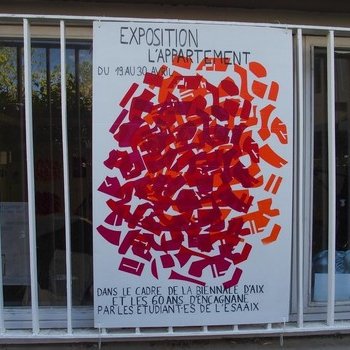 EXPOSITION
L'APPARTEMENT
DU 19 AU 30 AVRIL
DANS LE CADRE DE LA BIENNALE D'AIX
ET LES 60 ANS D'ENCAGNANE
PAR LES ÉTUDIANT·ES DE L'ESAAIX